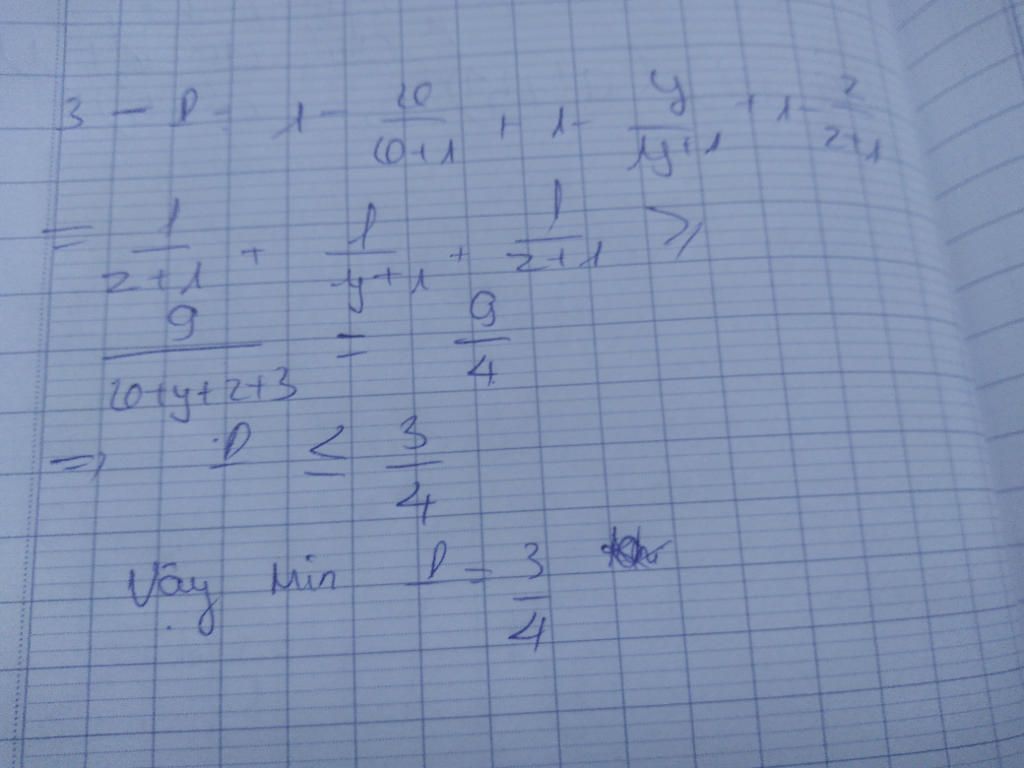 3 - P = 1 - x/(x+1) + 1 - y/(y+1) + 1 - z/(z+1)
= 1/(z+1) + 1/(y+1) + 1/(z+1) ≥
9/(x+y+z+3) = 9/4
=> P ≤ 3/4
Vậy Min P = 3/4